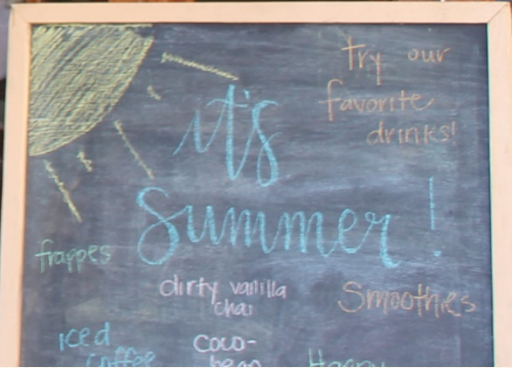 try our
favorite
drinks!
it's
summer!
frappes
dirty vanilla
chai
Smoothies
iced
coffee
Coco-
bean
Happy